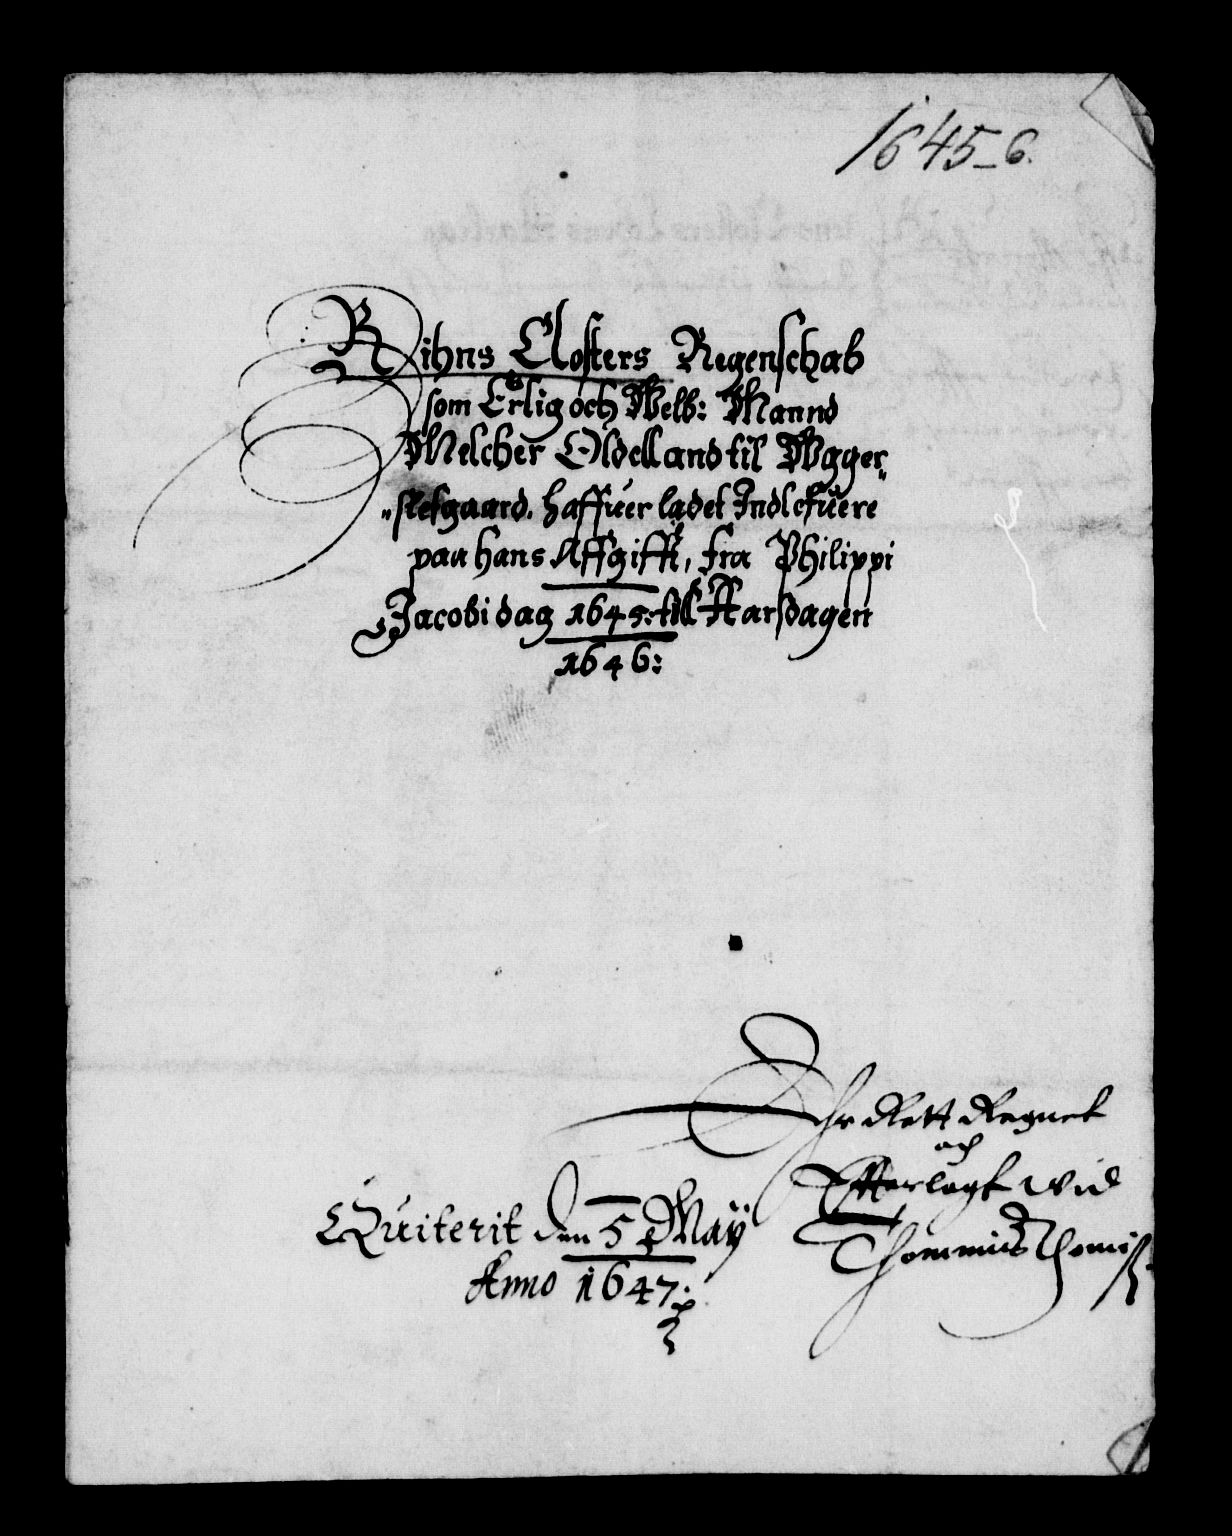 1645_6.
Rihns Closters Regenschab
som Erlig och Welb: Mannd
Melcher Oldelland til Wgger„
„sløfgaard. haffuer ladet Indlefuere
paa hans Affgifft, fra Philippi
Jacobi dag 1645: till Aarsdagen
1646:
Ehr Rett Regnet
och
Efterlagt wid
Thommis Thomiß
Quiterit den 5 May
Anno 1647: